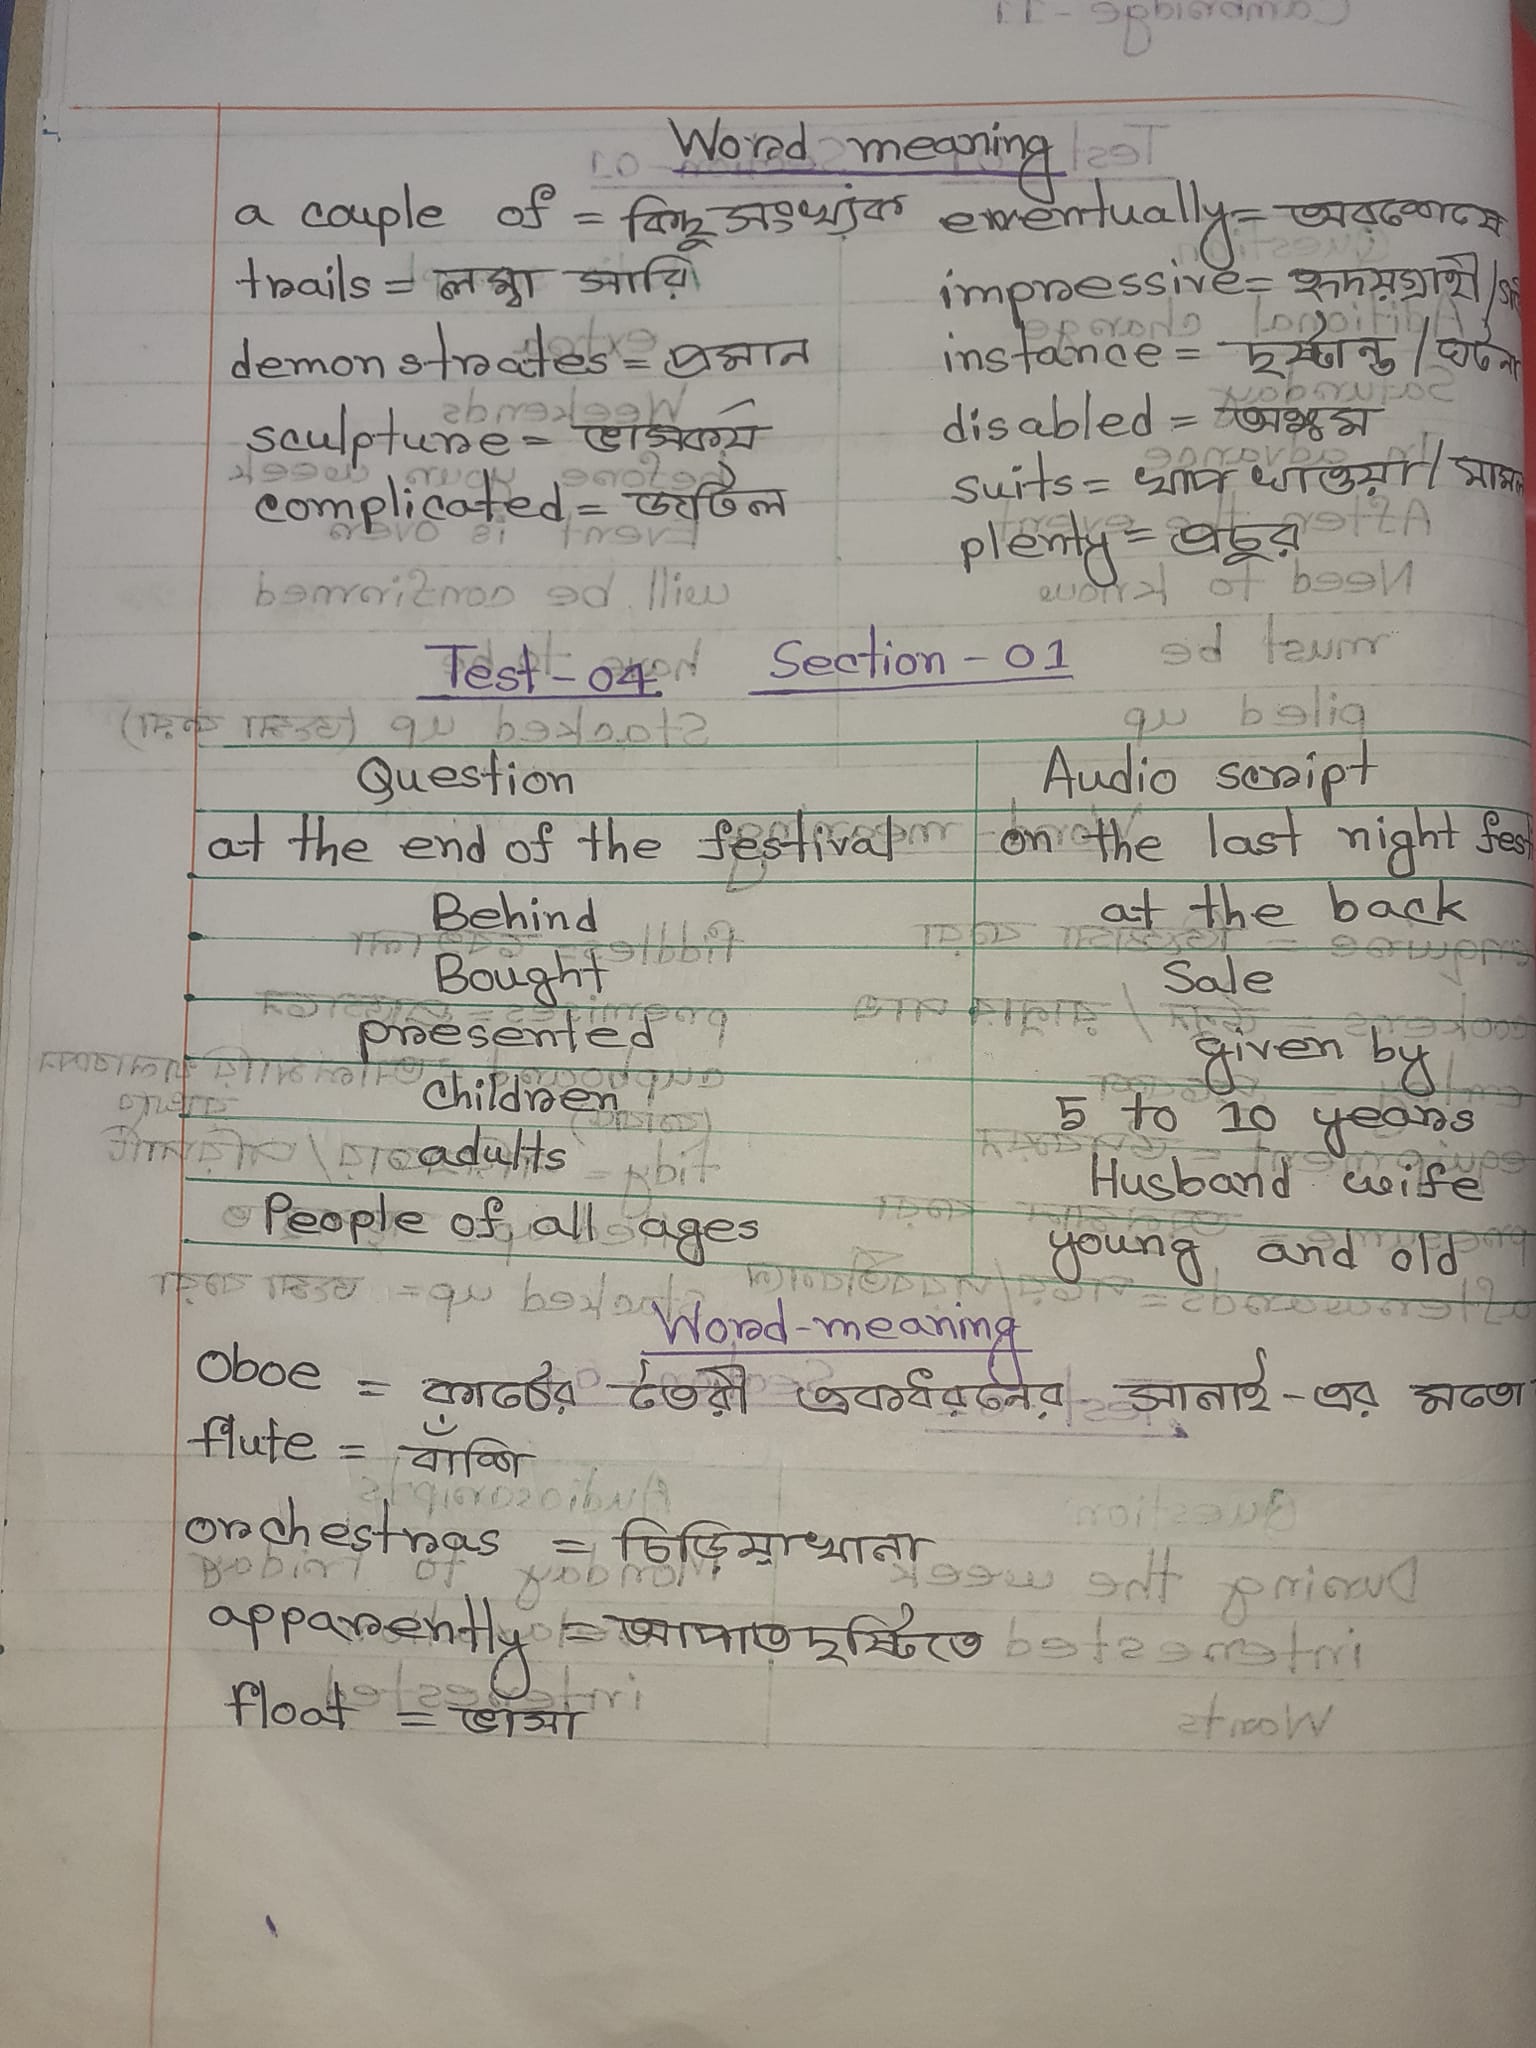 Word meaning
a couple of = কিছু সংখ্যক
eventually = অবশেষে
trails = লম্বা সারি
impressive = হৃদয়গ্রাহী /
demonstrates = প্রমান
instance = দৃষ্টান্ত /
sculpture = ভাস্কর্য
disabled = অক্ষম
complicated = জটিল
suits = খাপ খাওয়া /
plenty = প্রচুর
Test-04 Section-01
Question Audio script
at the end of the festival on the last night
Behind at the back
Bought Sale
presented given by
children 5 to 10 years
adults Husband wife
People of all ages young and old
Word-meaning
oboe = কাঠের তৈরী একধরনের সানাই-এর মতো
flute = বাঁশি
orchestras = চিড়িয়াখানা
apparently = আপাতদৃষ্টিতে
float = ভাসা